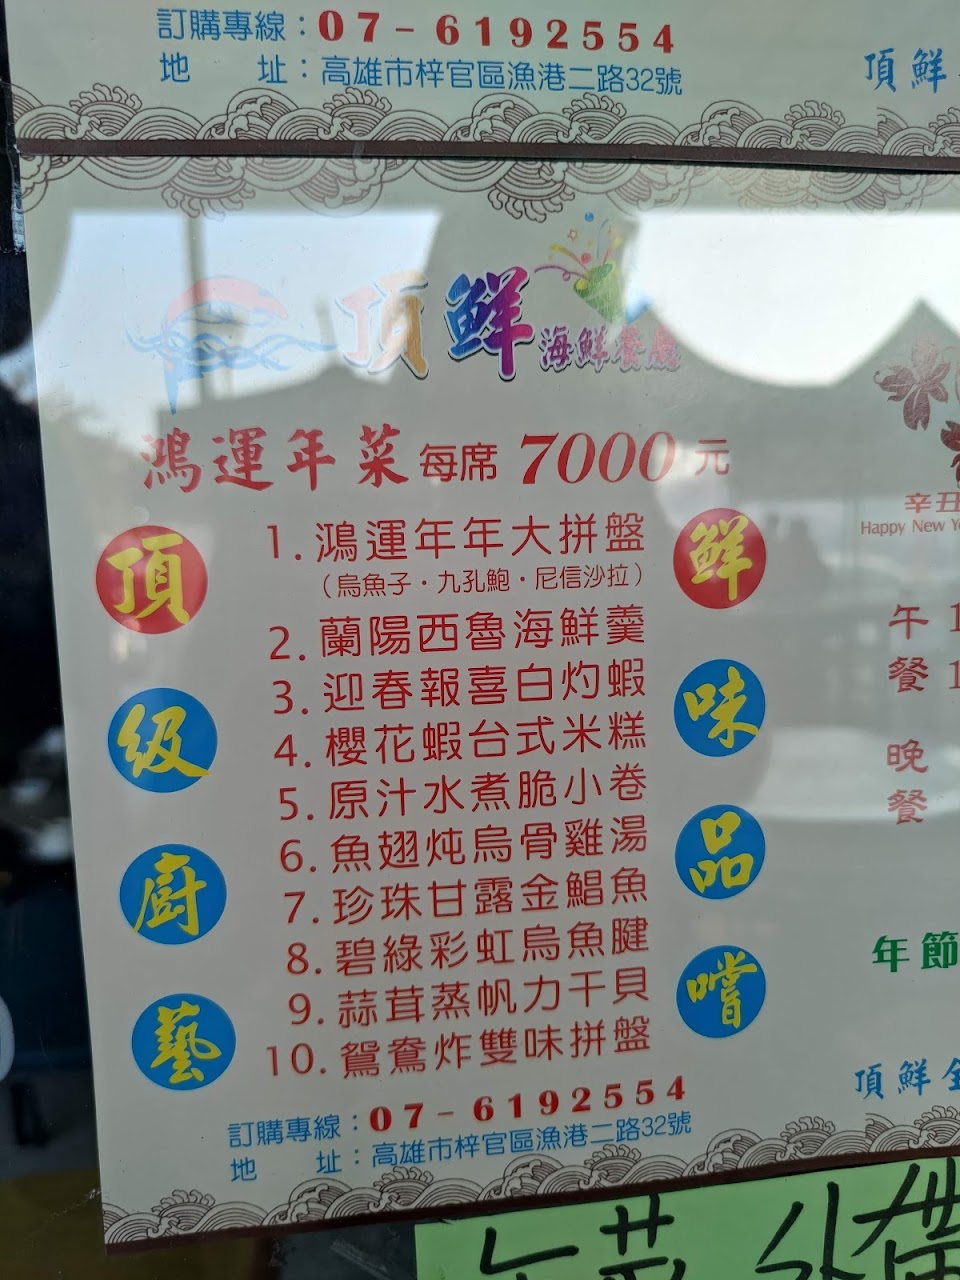 訂購專線：07-6192554
地　址：高雄市梓官區漁港二路32號
頂鮮
頂鮮海鮮餐廳
鴻運年菜每席 7000 元
頂級廚藝
鮮味品嚐
1. 鴻運年年大拼盤
（烏魚子・九孔鮑・尼信沙拉）
2. 蘭陽西魯海鮮羹
3. 迎春報喜白灼蝦
4. 櫻花蝦台式米糕
5. 原汁水煮脆小卷
6. 魚翅炖烏骨雞湯
7. 珍珠甘露金鯧魚
8. 碧綠彩虹烏魚腱
9. 蒜茸蒸帆力干貝
10. 鴛鴦炸雙味拼盤
訂購專線：07-6192554
地　址：高雄市梓官區漁港二路32號
辛丑
Happy New
午 1
餐 1
晚
餐
年節
頂鮮全
年菜外帶